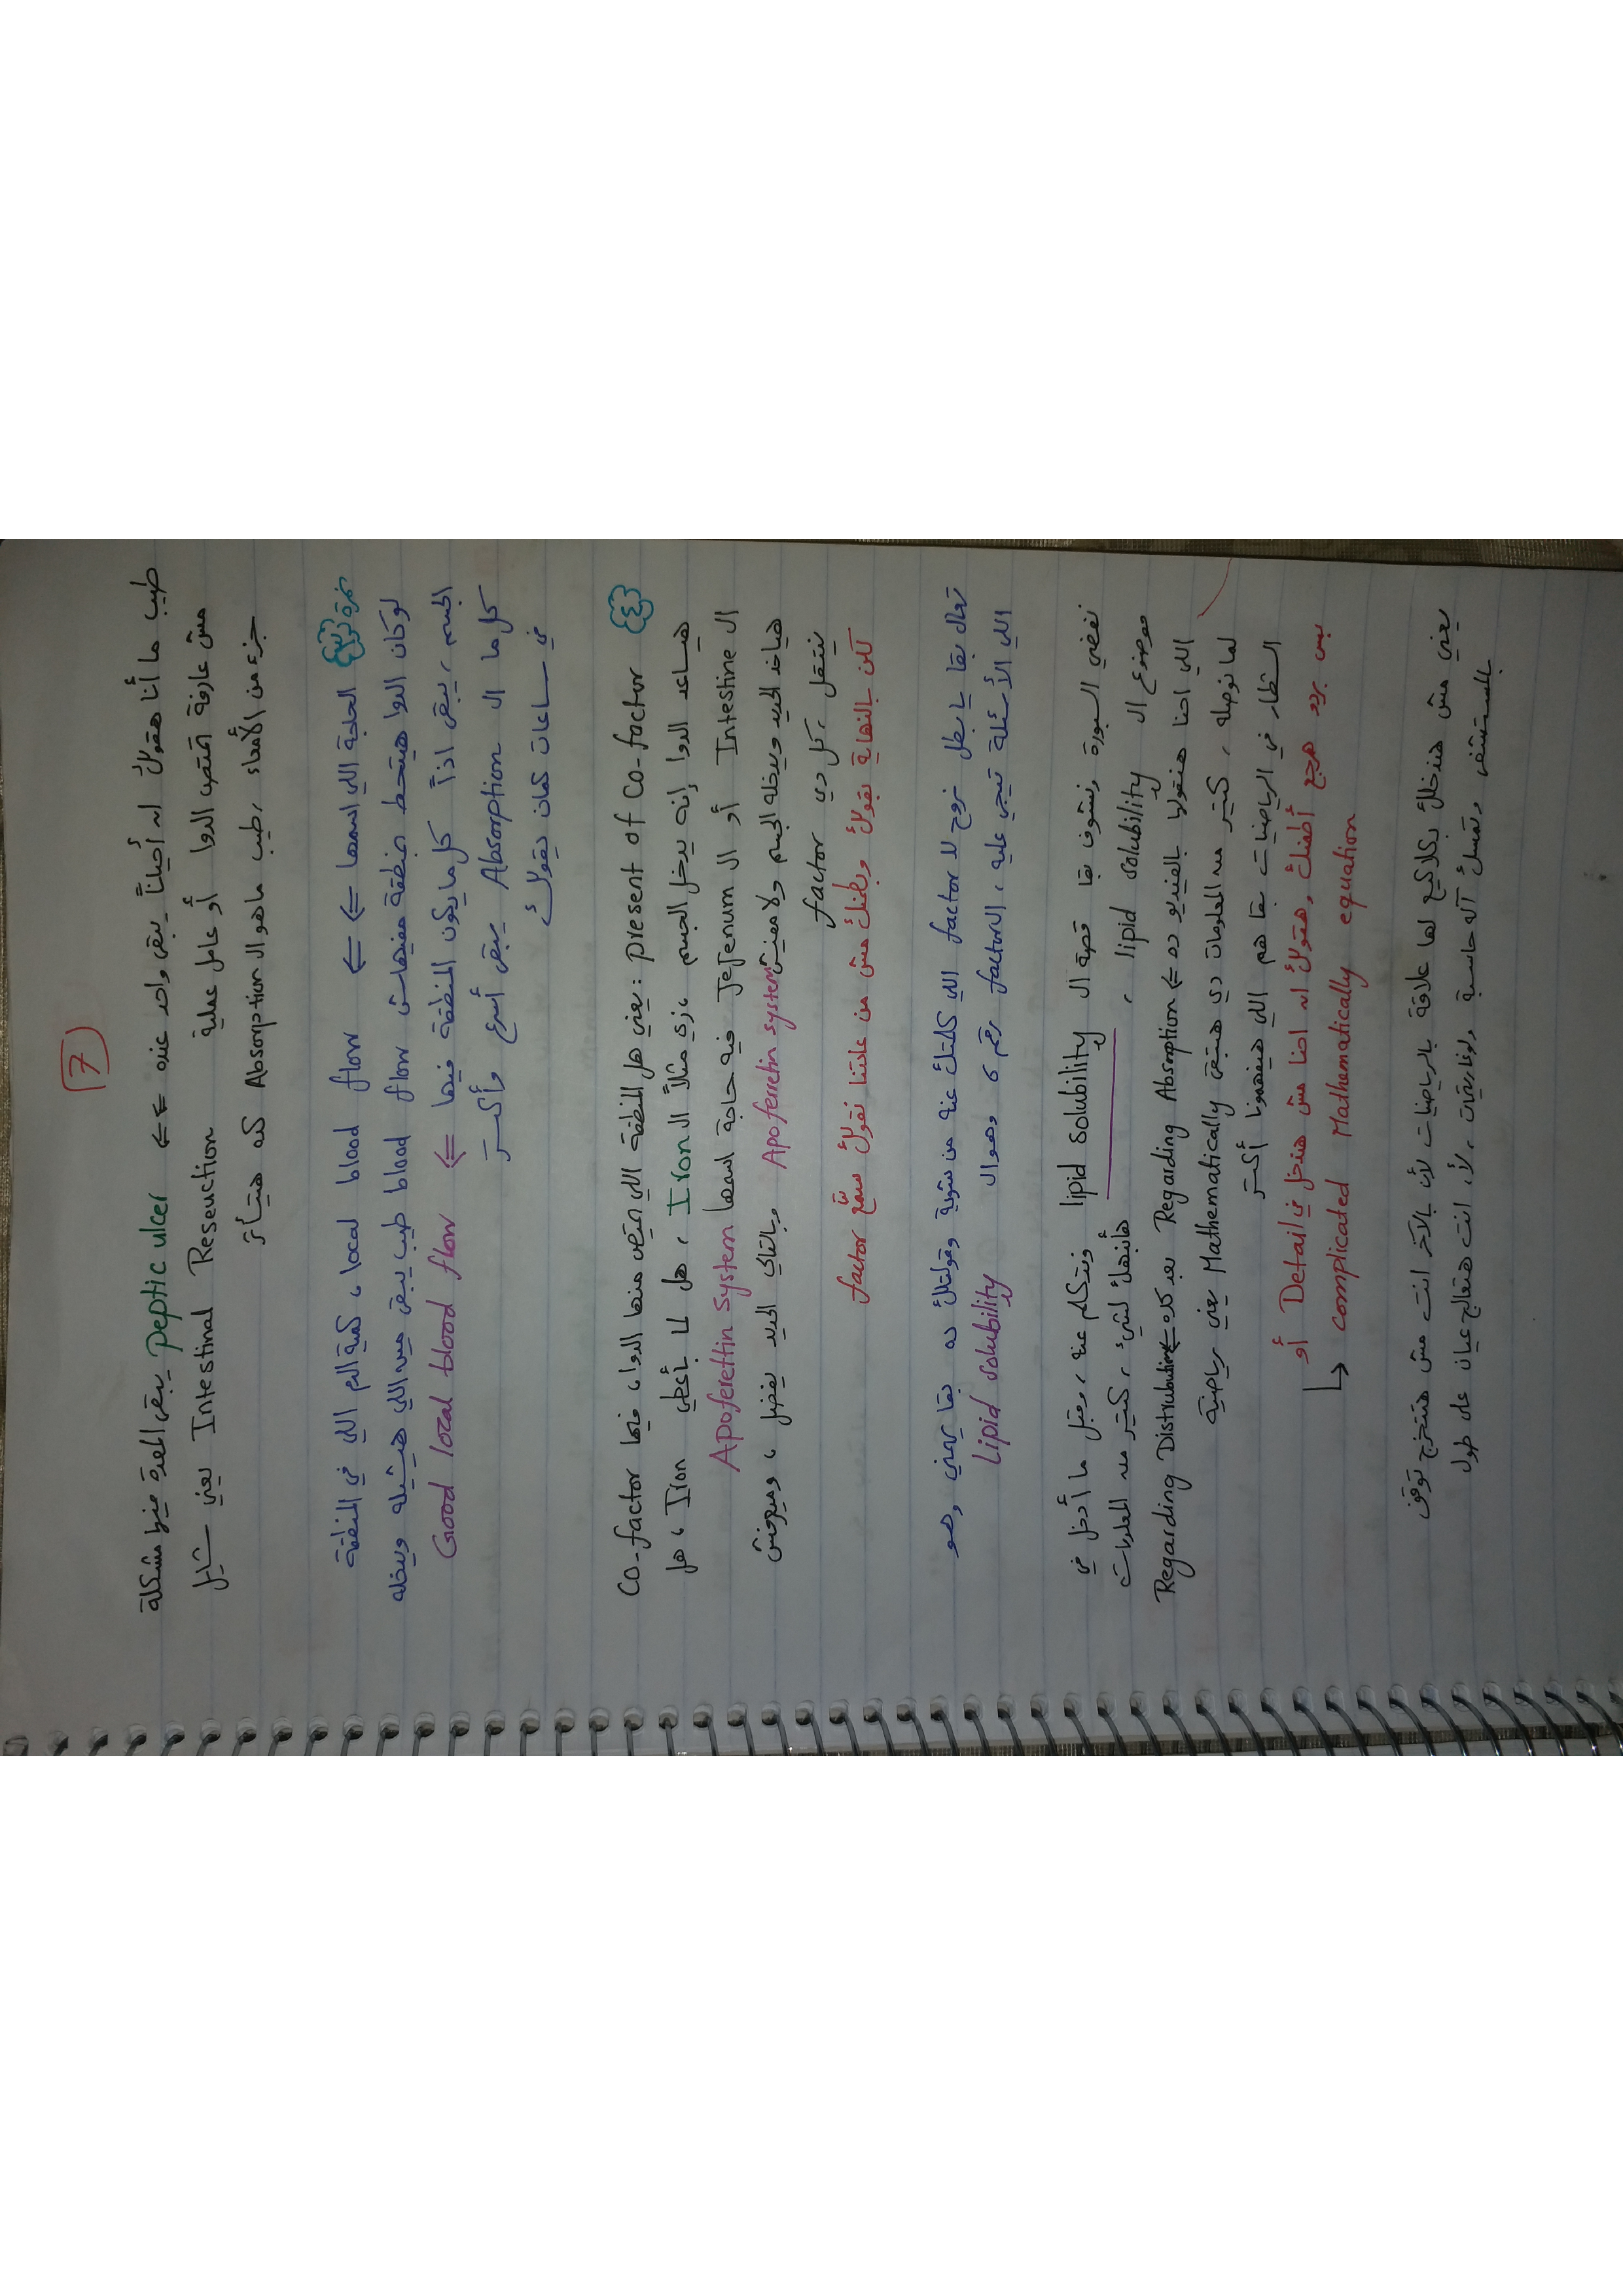 7
طيب ما أنا هقولك انه أحياناً يبقى واحد عنده ⇐⇐ peptic ulcer يبقى المعدة فيها مشكلة
مش عارفة تمتص الدوا أو عامل عملية Intestinal Resection يعني شايل
جزء من الأمعاء، طيب ماهو ال Absorption كده هيتأثر
نمرة ٣ الحاجة اللي اسمها ⇐⇐ local blood flow، كمية الدم اللي في المنطقة
لو كان الدوا هيتحط بمنطقة مفيهاش blood flow طيب يبقى مين اللي هيشيله ويدخله
الجسم، يبقى اذاً كل ما يكون المنطقة فيها ⇐ Good local blood flow
كل ما ال Absorption يبقى أسرع وأكتر
في ساعات كمان يقولك
٤ present of Co-factor: يعني هل المنطقة اللي اتمتص منها الدوا، فيها Co-factor
هيساعد الدوا إنه يدخل الجسم، زي مثلاً ال Iron، هل لما بأعطي Iron، هل
ال Intestine أو ال Jejenum فيه حاجة اسمها Apoferettin System
هياخد الحديد ويدخله الجسم ولا مفيش Apoferretin system وبالتالي الحديد يفضل، وميعرفش
يتنقل، كل دي factor
لكن بالنهاية بقولك وبطمنك مش من عادتنا نقولك سمّع factor
تعال بقا يا بطل نروح لل factor اللي كلمتك عنه من شوية وقولتلك ده بقا يهمني وهو
اللي الأسئلة تيجي عليه، ال factor رقم ٦ وهو ال Lipid solubility
نفضي السبورة ونشوف بقا قصة ال lipid solubility ونتكلم عنه، وقبل ما أدخل في
موضوع ال lipid solubility، هأنبهك لشيء، كتير من المعلومات
اللي احنا هنقولها بالفيديو ده ⇐ Regarding Absorption بعد كده ⇐ Regarding Distrubution
لما نوصله، كتير من المعلومات دي هتبقى Mathematically يعني رياضية
الشطار في الرياضيات بقا هم اللي هيفهمونا أكتر
بس برده هرجع أطمنك، وهقولك انه احنا مش هندخل في Detail أو
complicated Mathematically equation
يعني مش هندخلك بكلاكيع لها علاقة بالرياضيات لأن بالآخر انت مش هتتخرج توقف
بالمستشفى وتمسك آلة حاسبة ولوغاريتمات، لأ، انت هتعالج عيان على طول